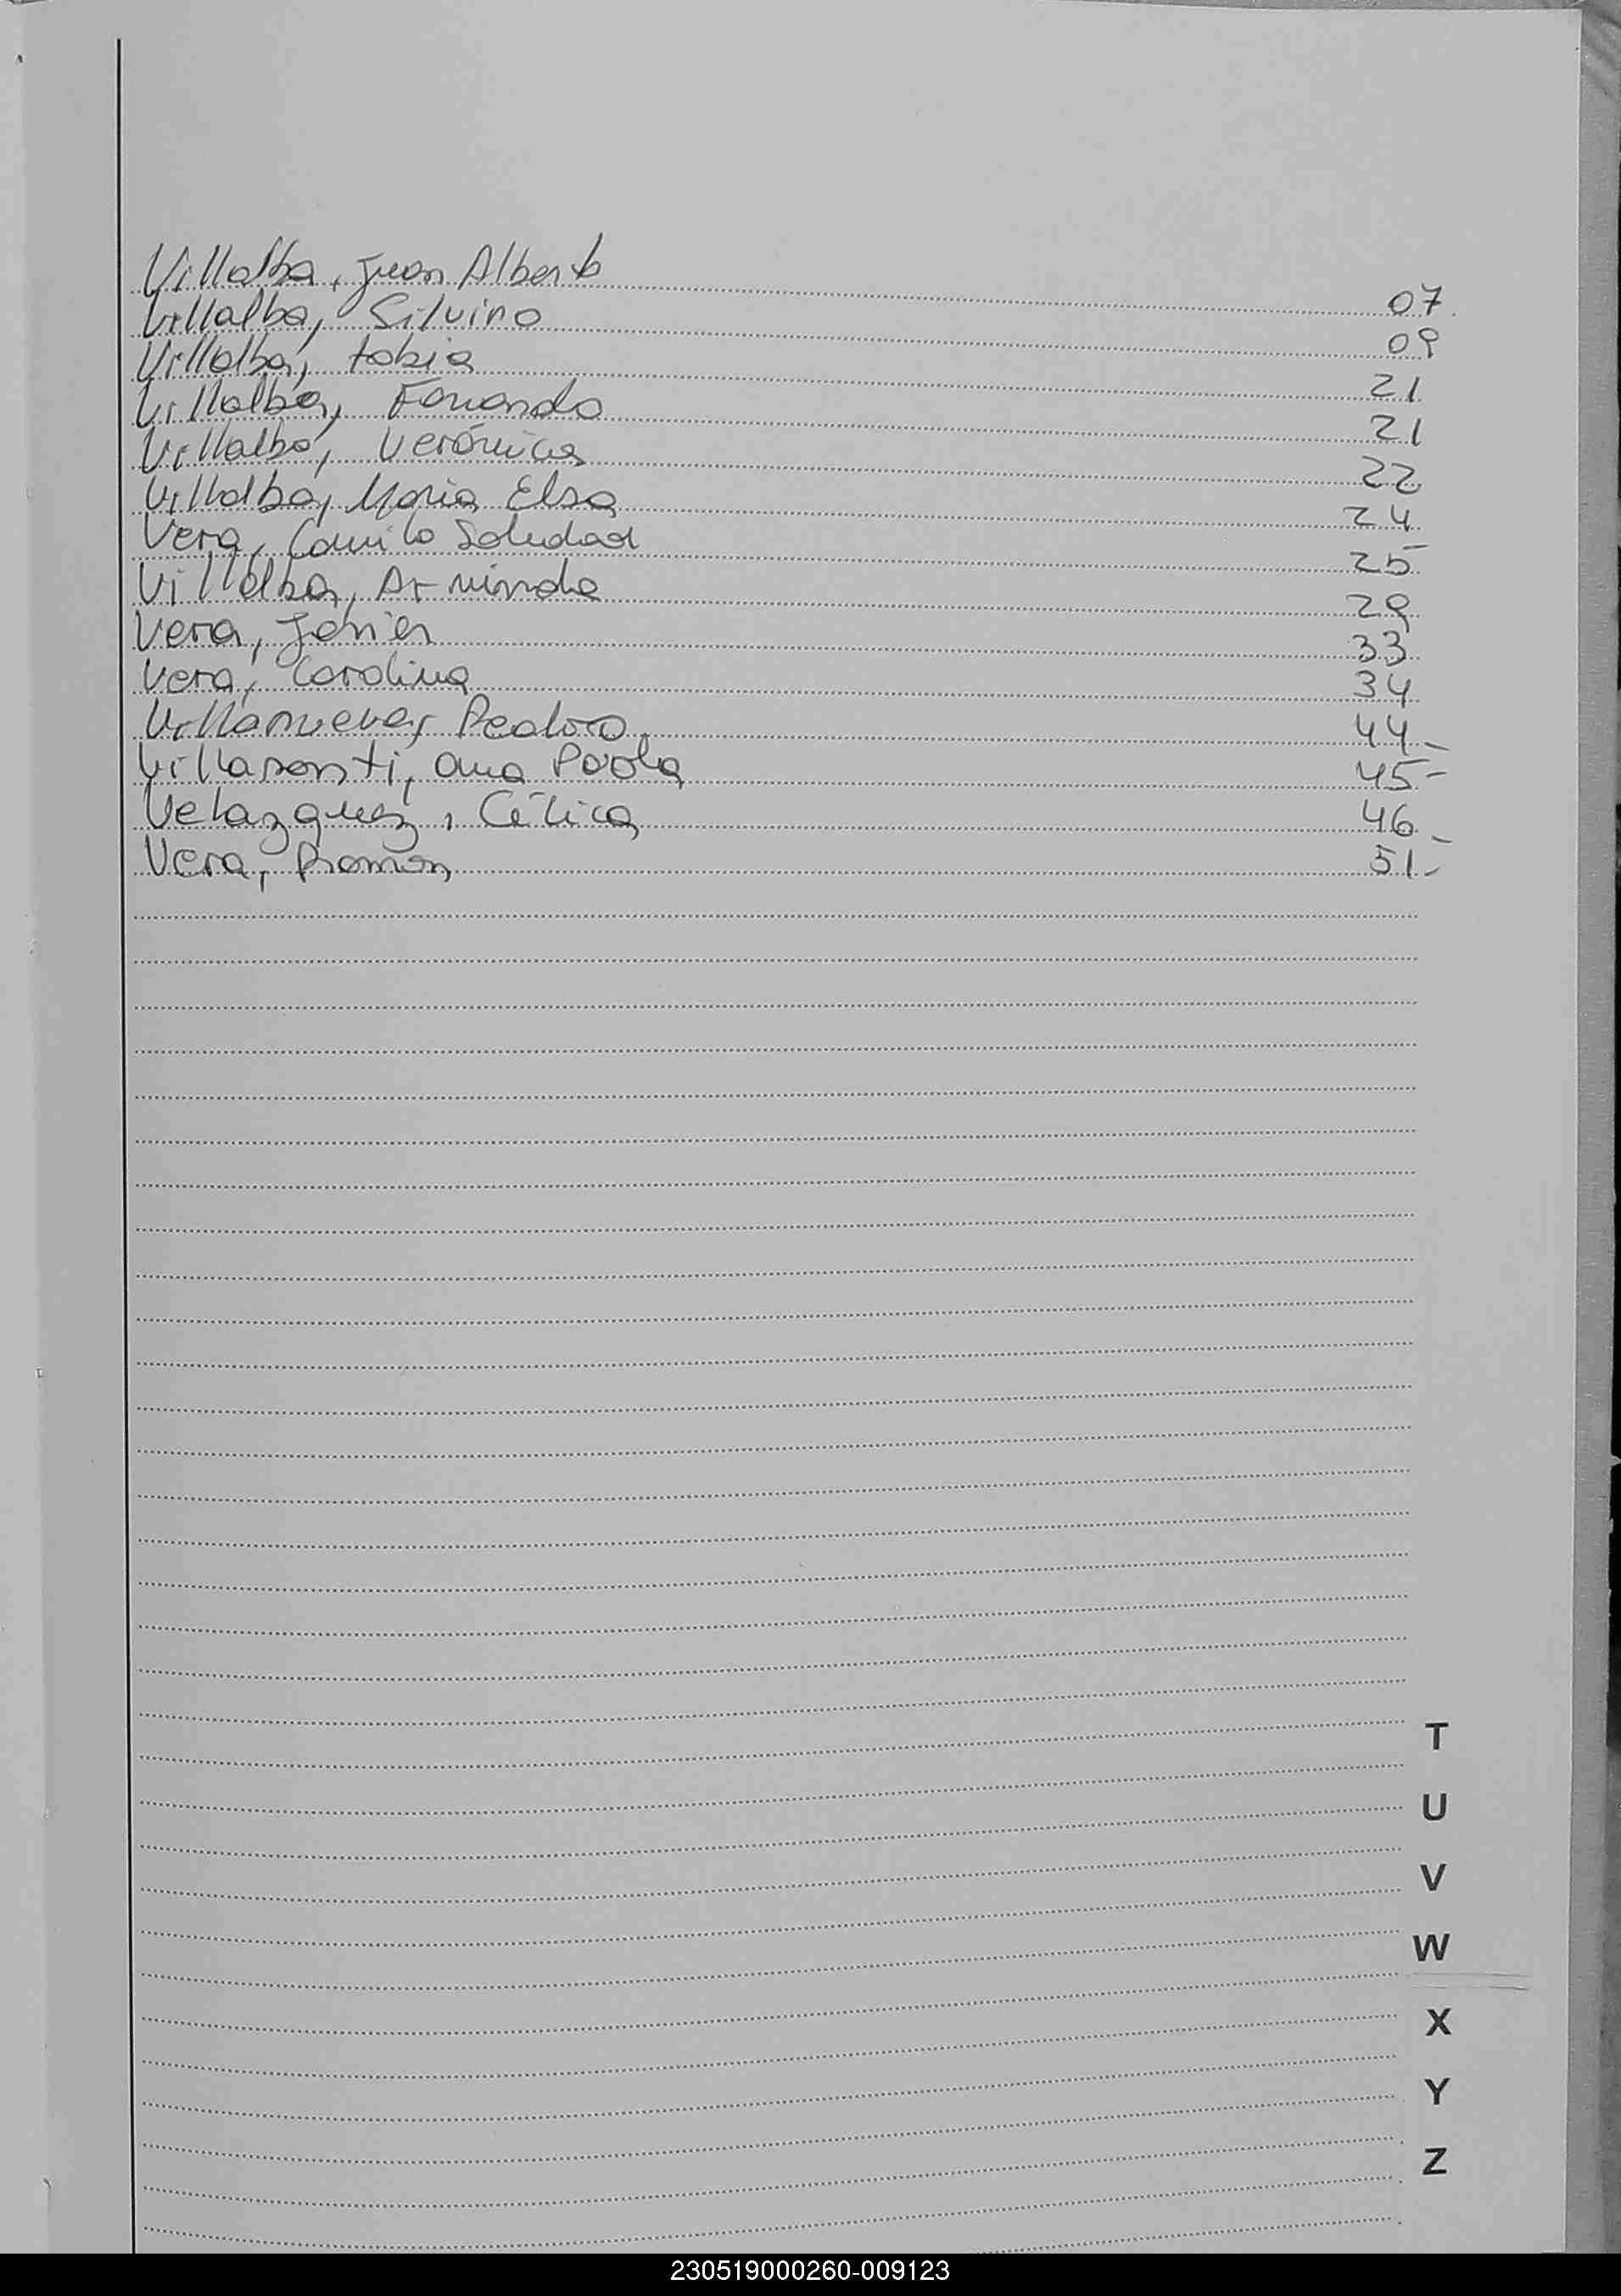 Villalba, Juan Alberto 07
Villalba, Silvino 09
Villalba, tobia 21
Villalba, Fernando 21
Villalba, Verónica 22
Villalba, Maria Elsa 24
Vera, Camila Soledad 25
Villalba, Arminda 29
Vera, Javier 33
Vera, Carolina 34
Villanueva, Pedro 44-
Villasanti, ana Paola 45-
Velazquez, 46-
Vera, Ramon 51-
T
U
V
W
X
Y
Z
230519000260-009123